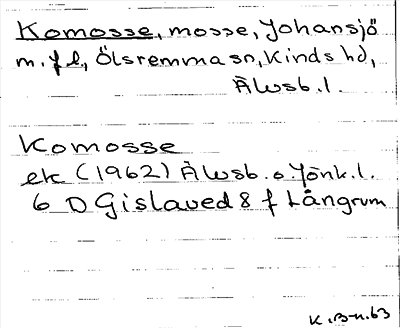 Komosse, mosse, Johansjö
m. fl, Ölsremma sn, Kinds hd,
Älvsb. l.
Komosse
ek (1962) Älvsb. o. Jönk. l.
6 D Gislaved 8 f Långrum
K. B-n. 63